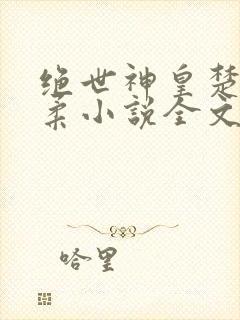 绝世神皇楚
柔小说全文
哈里